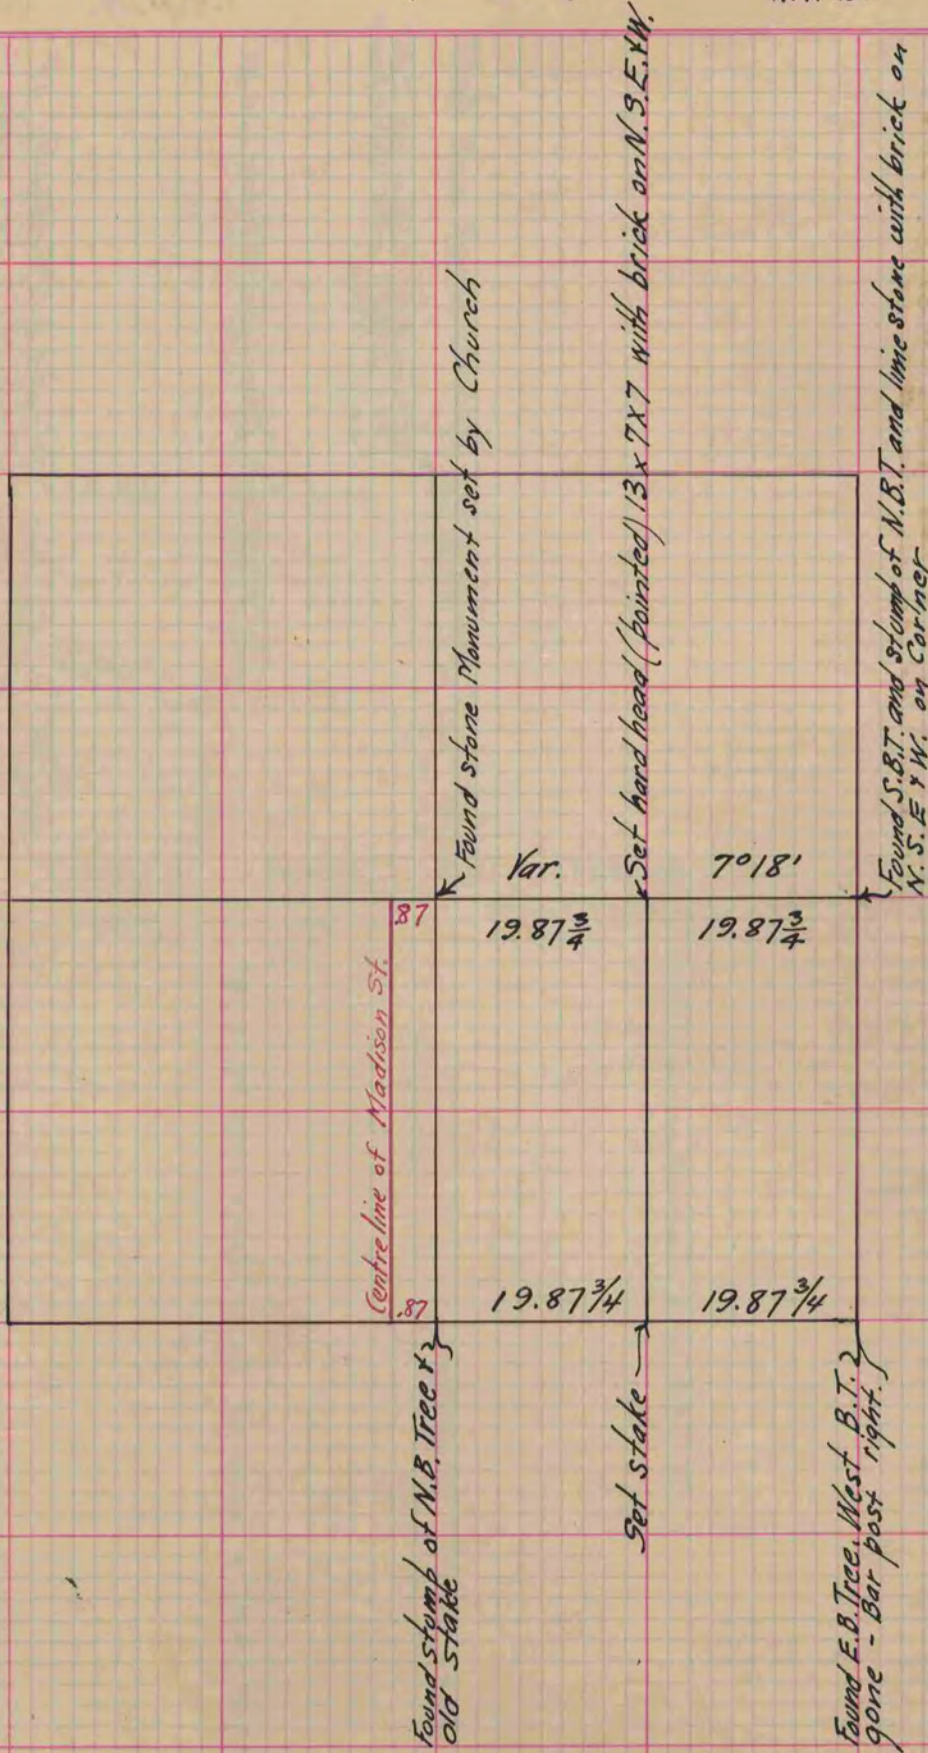 Found stone Monument set by Church
Set hard head (pointed) 13 x 7 x 7 with brick on N. S. E. & W.
Found S.B.T. and stump of N.B.T. and lime stone with brick on
N. S. E & W. on Corner
Var.
7°18'
.87
19.87 3/4
19.87 3/4
Centre line of Madison St.
.87
19.87 3/4
19.87 3/4
Found stump of N.B. Tree &
old stake
Set stake
Found E.B. Tree. West B.T.
gone - Bar post right.